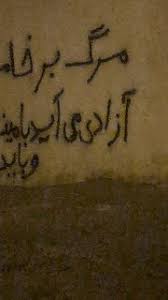 مرگ بر خا
آزادی می آید با مین
و باید